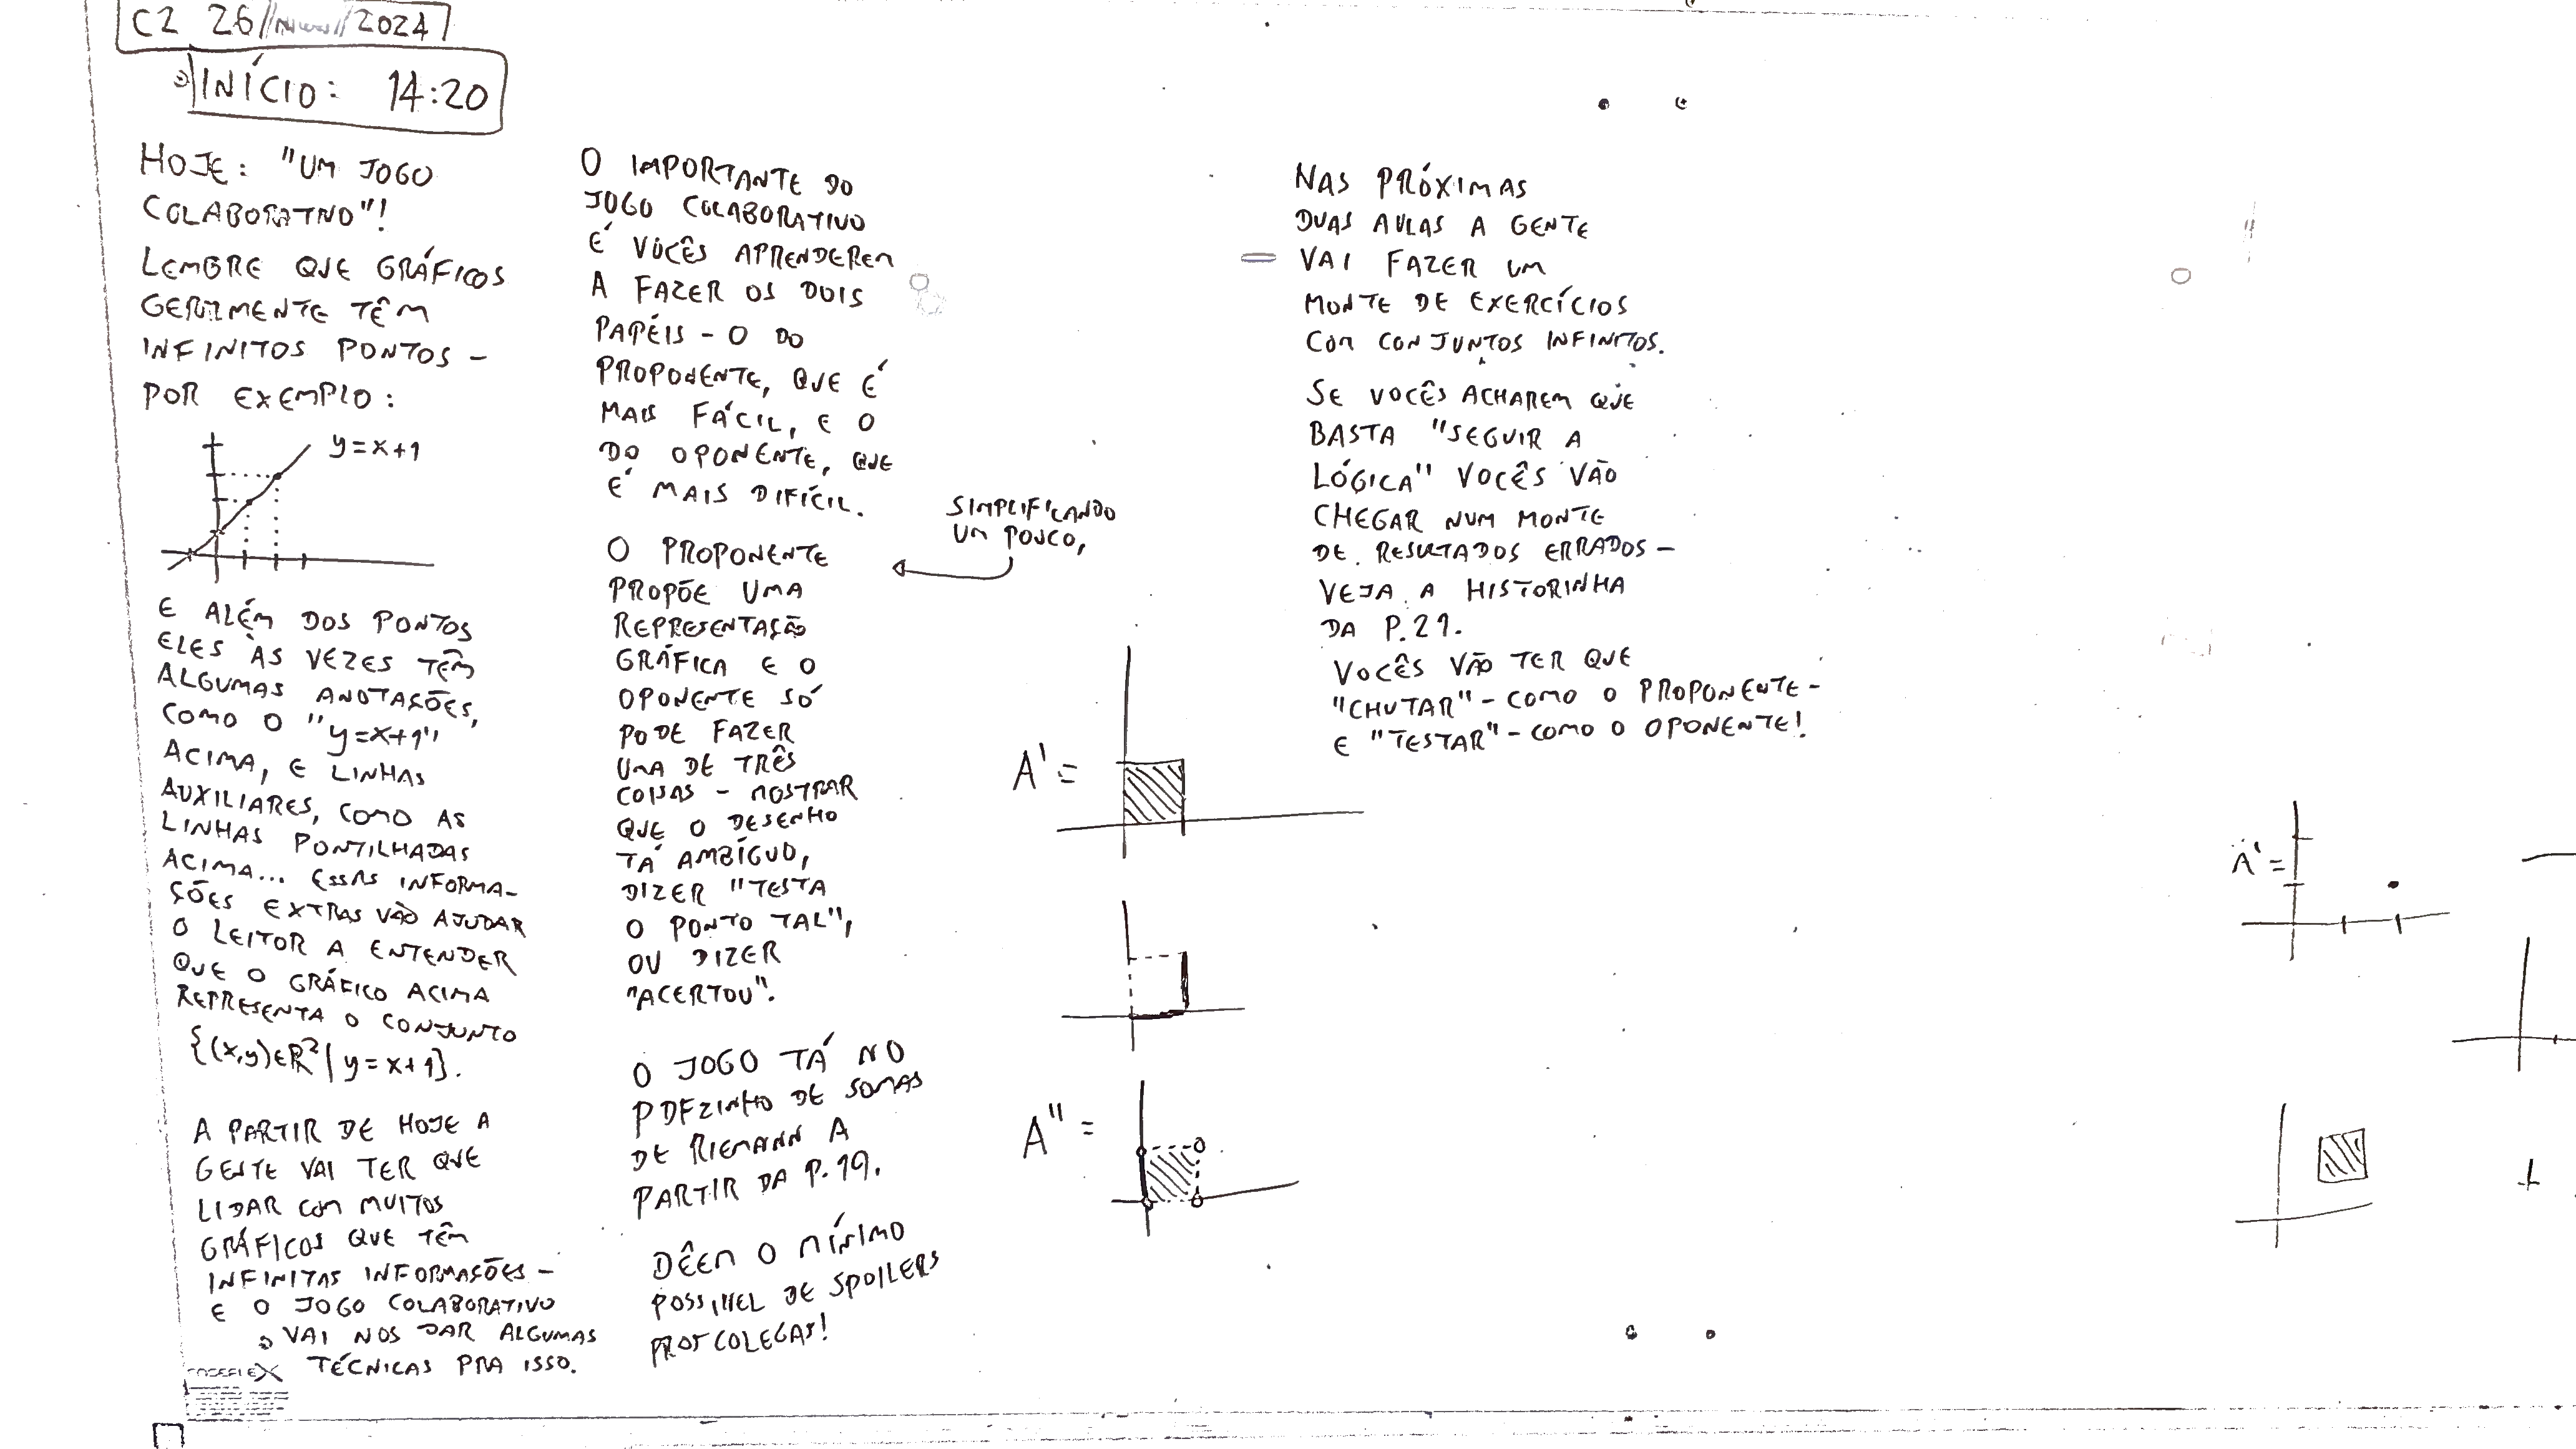 C2 26/ /2024
INÍCIO: 14:20
HOJE: "UM JOGO
COLABORATIVO"!
LEMBRE QUE GRÁFICOS
GERALMENTE TÊM
INFINITOS PONTOS –
POR EXEMPLO:
y=x+1
E ALÉM DOS PONTOS
ELES ÀS VEZES TÊM
ALGUMAS ANOTAÇÕES,
COMO O "y=x+1"
ACIMA, E LINHAS
AUXILIARES, COMO AS
LINHAS PONTILHADAS
ACIMA... ESSAS INFORMA-
ÇÕES EXTRAS VÃO AJUDAR
O LEITOR A ENTENDER
QUE O GRÁFICO ACIMA
REPRESENTA O CONJUNTO
{(x,y)∈R²| y=x+1}.
A PARTIR DE HOJE A
GENTE VAI TER QUE
LIDAR COM MUITOS
GRÁFICOS QUE TÊM
INFINITAS INFORMAÇÕES –
E O JOGO COLABORATIVO
VAI NOS DAR ALGUMAS
TÉCNICAS PRA ISSO.
O IMPORTANTE DO
JOGO COLABORATIVO
É VOCÊS APRENDEREM
A FAZER OS DOIS
PAPÉIS – O DO
PROPONENTE, QUE É
MAIS FÁCIL, E O
DO OPONENTE, QUE
É MAIS DIFÍCIL.
SIMPLIFICANDO
UM POUCO,
O PROPONENTE
PROPÕE UMA
REPRESENTAÇÃO
GRÁFICA E O
OPONENTE SÓ
PODE FAZER
UMA DE TRÊS
COISAS – MOSTRAR
QUE O DESENHO
TÁ AMBÍGUO,
DIZER "TESTA
O PONTO TAL",
OU DIZER
"ACERTOU".
O JOGO TÁ NO
PDFZINHO DE SOMAS
DE RIEMANN A
PARTIR DA P.19.
DÊEM O MÍNIMO
POSSÍVEL DE SPOILERS
PROS COLEGAS!
A' =
A'' =
NAS PRÓXIMAS
DUAS AULAS A GENTE
VAI FAZER UM
MONTE DE EXERCÍCIOS
COM CONJUNTOS INFINITOS.
SE VOCÊS ACHAREM QUE
BASTA "SEGUIR A
LÓGICA" VOCÊS VÃO
CHEGAR NUM MONTE
DE RESULTADOS ERRADOS –
VEJA A HISTORINHA
DA P.21.
VOCÊS VÃO TER QUE
"CHUTAR" – COMO O PROPONENTE –
E "TESTAR" – COMO O OPONENTE!
A' =